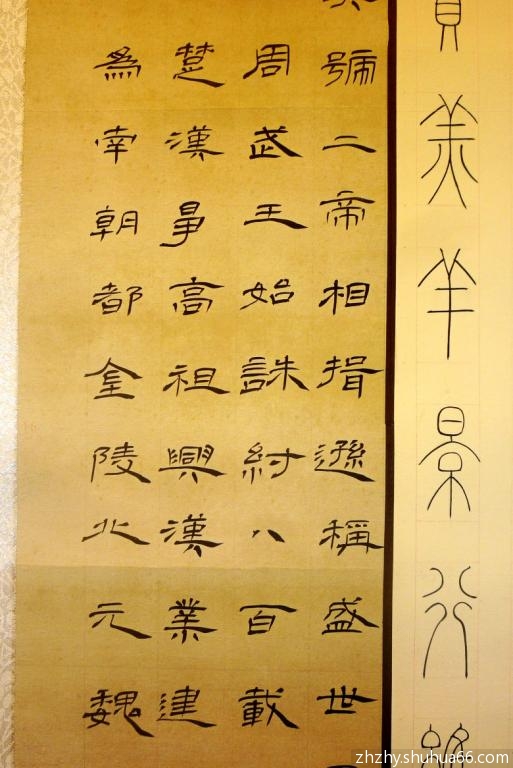 羔羊景行
號二帝相揖遜稱盛世
周武王始誅紂八百載
楚漢爭高祖興漢業建
為南朝都金陵北元魏
zhzhy.shuhua66.com